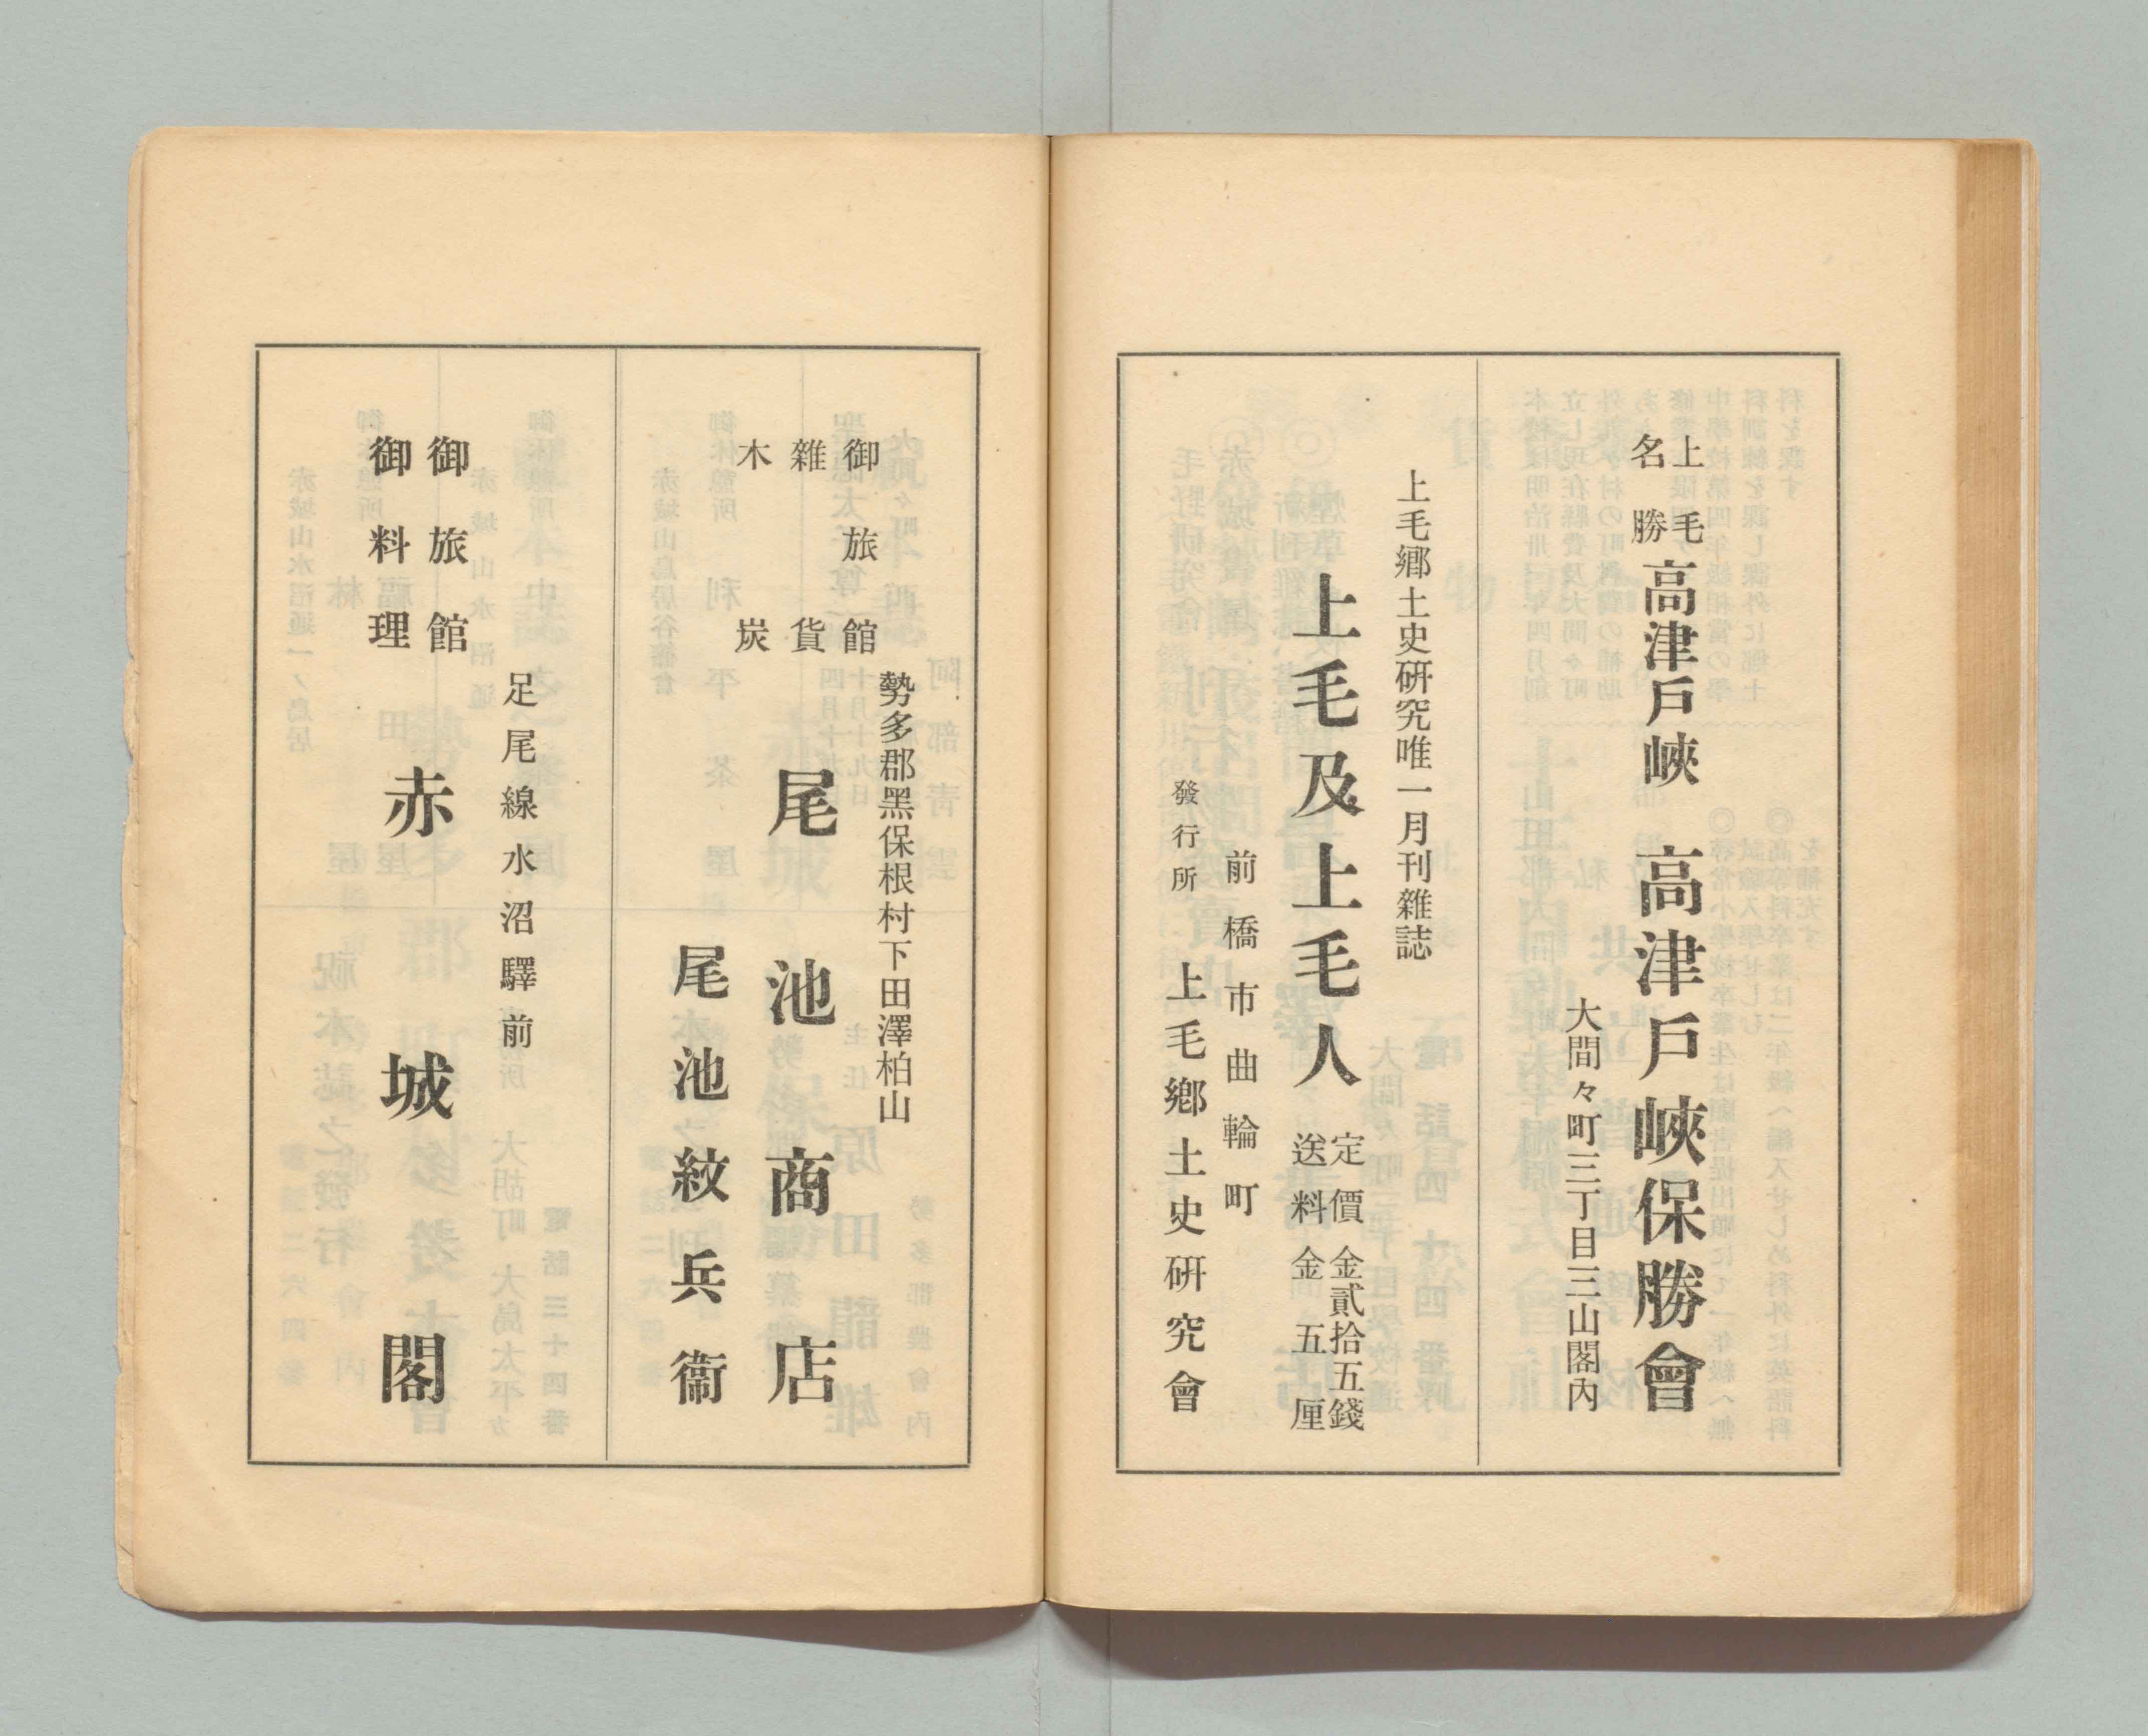 上毛
名勝
高津戶峽
高津戶峽保勝會
大間々町三丁目三山閣內
上毛鄉土史硏究唯一月刊雜誌
上毛及上毛人
定價金貳拾五錢
送料金五厘
前橋市曲輪町
發行所
上毛鄉土史硏究會
御旅館
雜貨
木炭
勢多郡黑保根村下田澤柏山
尾池商店
尾池紋兵衞
足尾線水沼驛前
御旅館
御料理
赤城閣